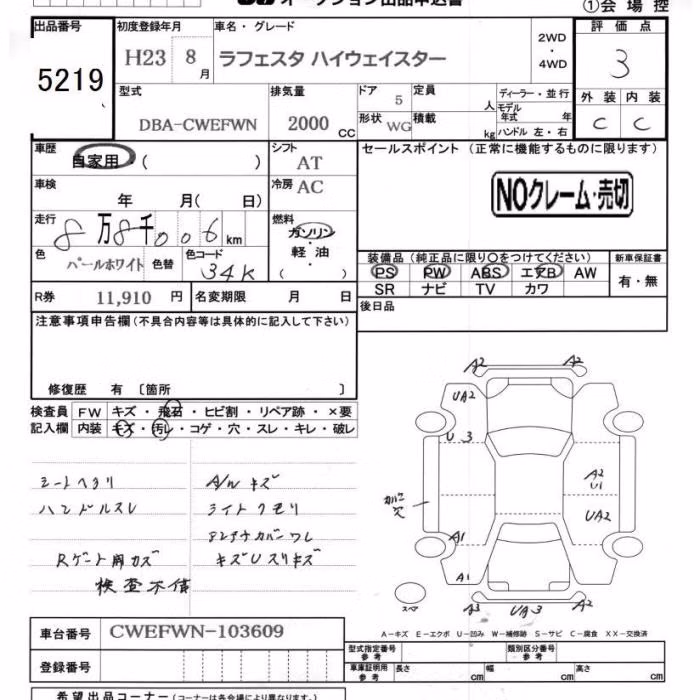 オークション出品申込書
①会場控
出品番号
5219
初度登録年月
H23 8月
車名・グレード
ラフェスタ ハイウェイスター
2WD
・
4WD
評価点
3
外装 内装
C C
型式
DBA-CWEFWN
排気量
2000 CC
ドア 5
形状 WG
定員 人
積載 kg
ディーラー・並行
モデル年式 年
ハンドル 左・右
車歴
自家用・( )
シフト AT
冷房 AC
車検
年 月( 日)
走行
8万8千006km
燃料
ガソリン
・
軽油
・
( )
色
パールホワイト
色替
色コード
34K
R券 11,910 円
名変期限 月 日
セールスポイント (正常に機能するものに限ります)
NOクレーム・売切
装備品(純正品に限り○をつけてください)
PS PW ABS エアB AW
SR ナビ TV カワ
新車保証書
有・無
後日品
注意事項申告欄(不具合内容等は具体的に記入して下さい)
修復歴 有 〔箇所 〕
検査員記入欄
FW キズ・飛石・ヒビ割・リペア跡・×要
内装 キズ・汚レ・コゲ・穴・スレ・キレ・破レ
シートヘタリ
ハンドルスレ
A/W キズ
ライトクモリ
アンテナカバーワレ
キズUスリキズ
検査不備
A2 A2
UA2
U3
A2
U1
UA2
カバー穴
A1
A1
スペア
A3 UA3 A2
A-キズ E-エクボ U-凹み W-補修跡 S-サビ C-腐食 XX-交換済
車台番号 CWEFWN-103609
登録番号
型式指定番号 参考
類別区分番号 参考
車庫証明用 参考
長さ cm 幅 cm 高さ cm
希望出品コーナー(コーナーは各会場により異なります)